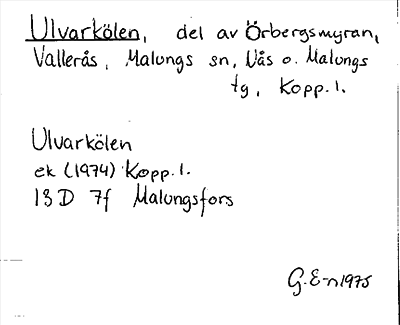 Ulvarkölen, del av Örbergsmyran,
Vallerås, Malungs sn, Nås o. Malungs
tg, Kopp. l.
Ulvarkölen
ek (1974) Kopp. l.
13 D 7f Malungsfors
G. E-n 1975